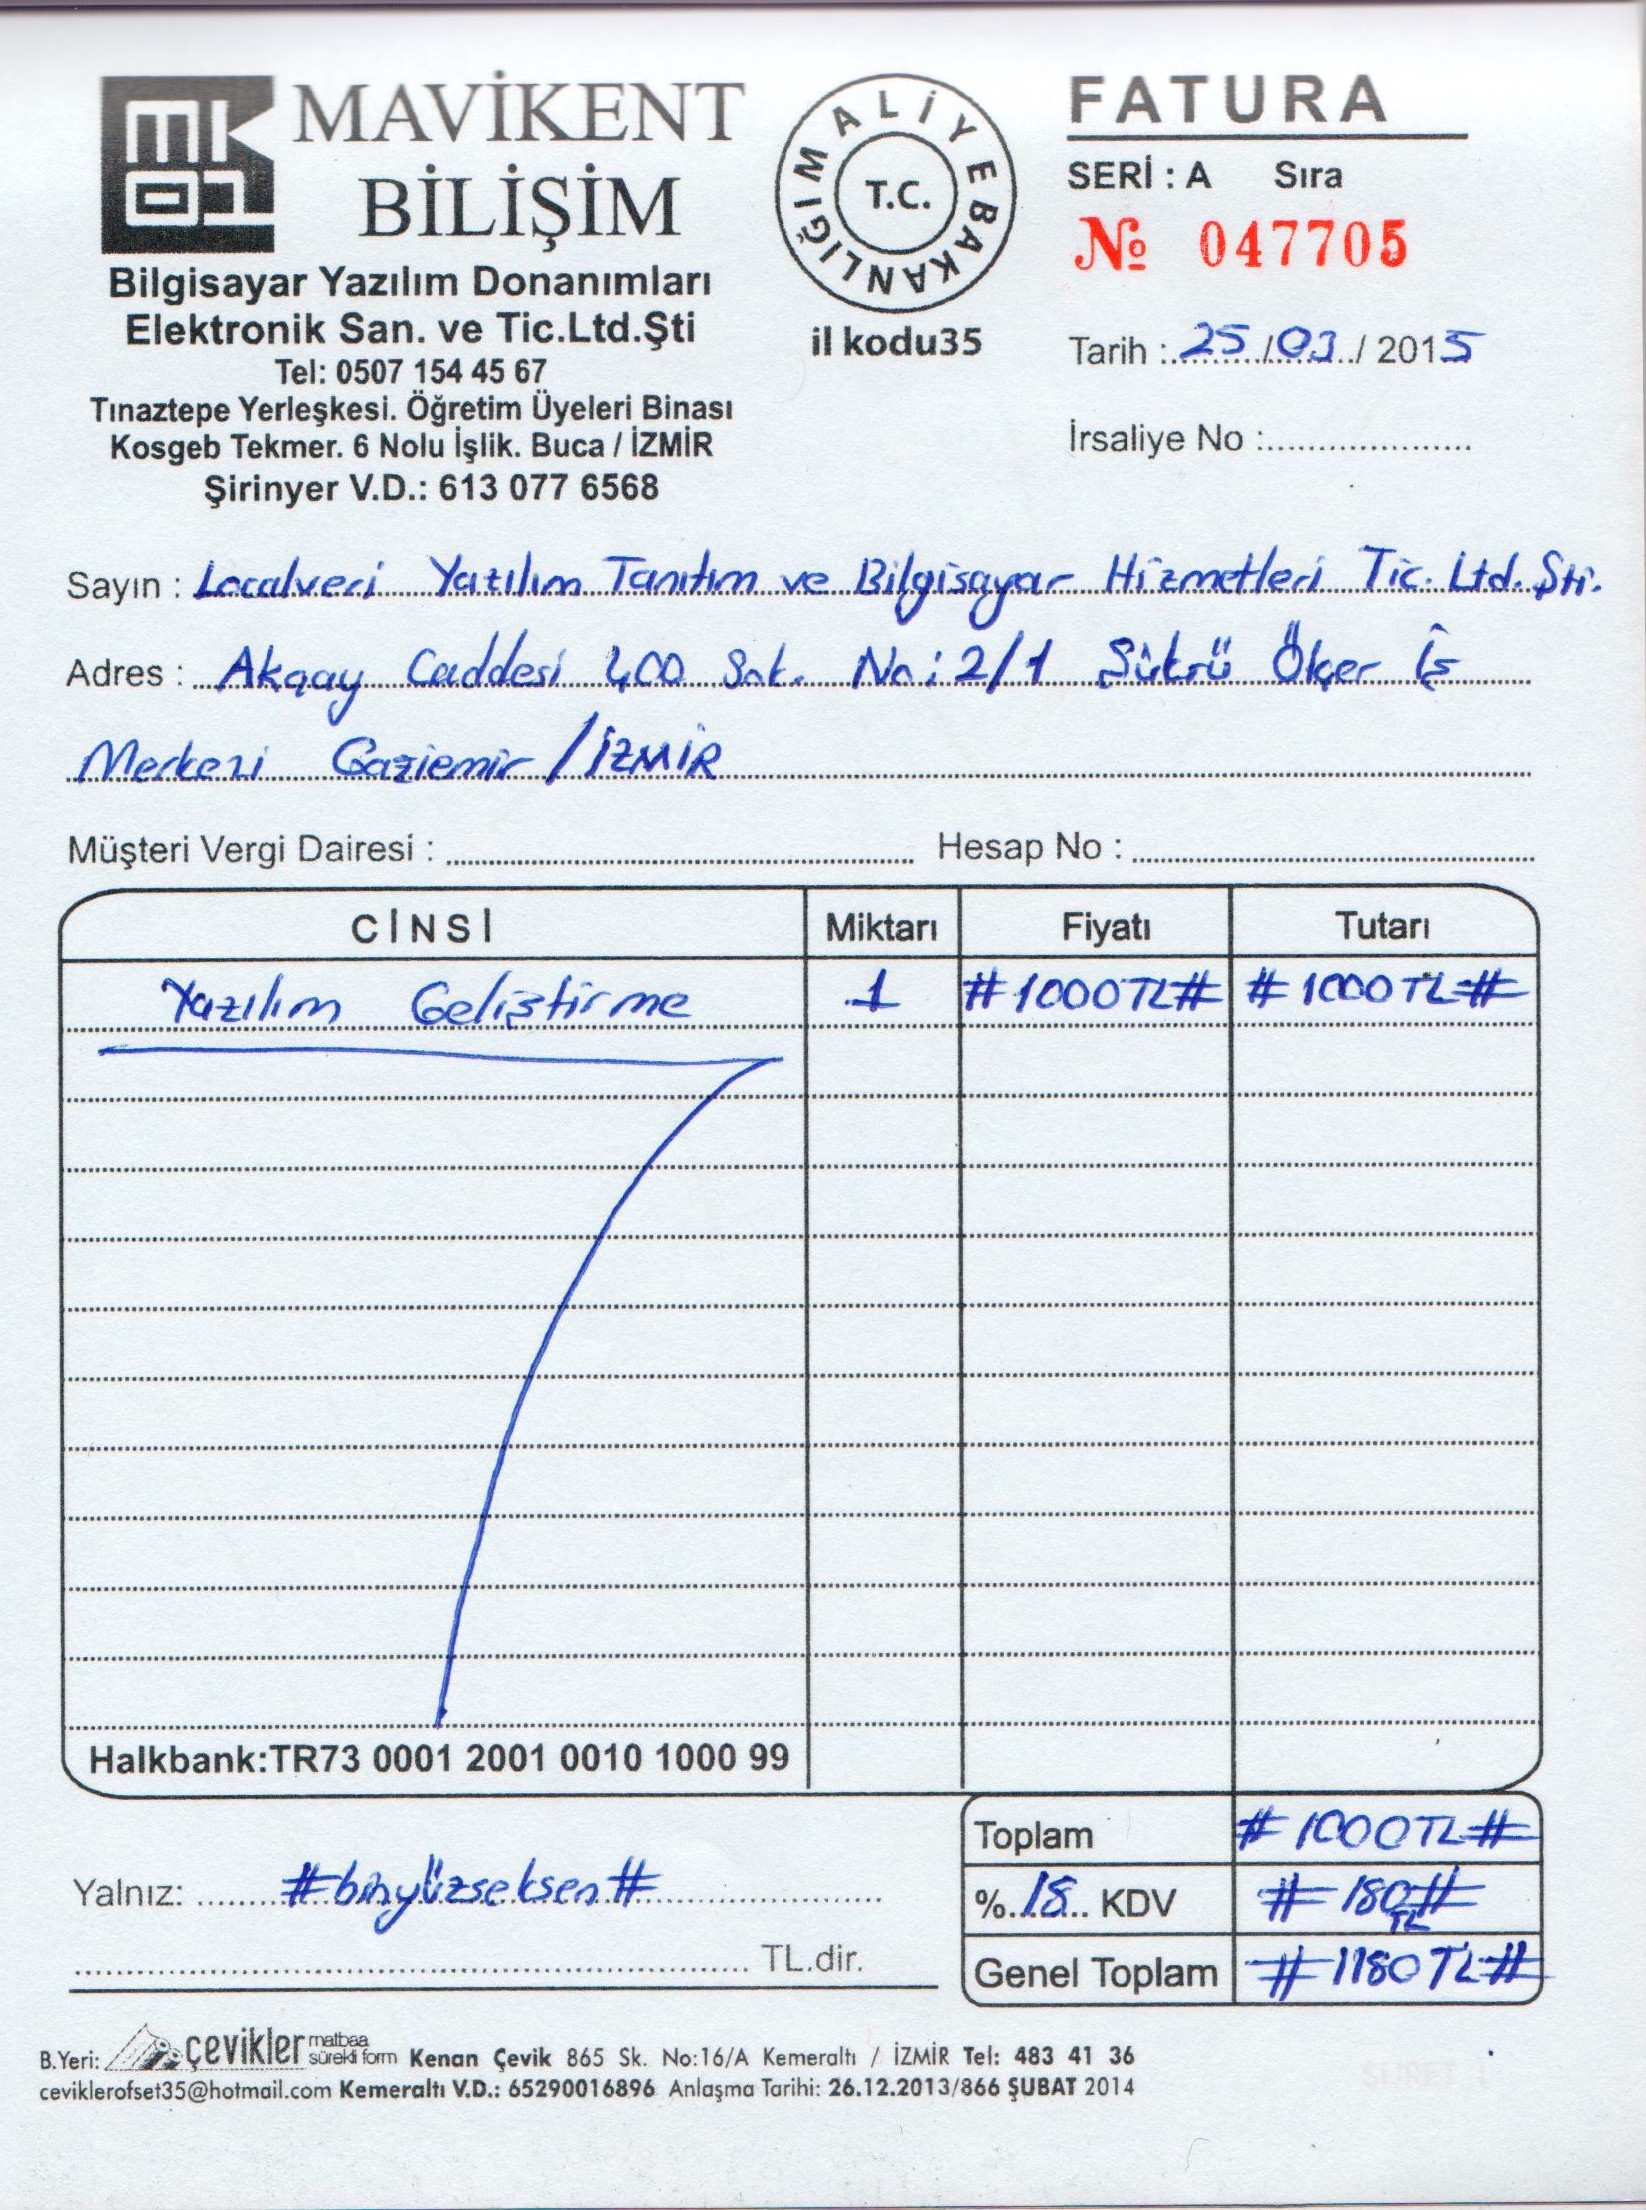 MAVİKENT
BİLİŞİM
Bilgisayar Yazılım Donanımları
Elektronik San. ve Tic.Ltd.Şti
Tel: 0507 154 45 67
Tınaztepe Yerleşkesi. Öğretim Üyeleri Binası
Kosgeb Tekmer. 6 Nolu İşlik. Buca / İZMİR
Şirinyer V.D.: 613 077 6568
MALİYE BAKANLIĞI
T.C.
il kodu35
FATURA
SERİ : A Sıra
№ 047705
Tarih : 25 / 03 / 2015
İrsaliye No :
Sayın : Localveri Yazılım Tanıtım ve Bilgisayar Hizmetleri Tic. Ltd. Şti.
Adres : Akçay Caddesi 400 Sok. No: 2/1 Şükrü Ölçer İş
Merkezi Gaziemir / İZMİR
Müşteri Vergi Dairesi : Hesap No :
CİNSİ Miktarı Fiyatı Tutarı
Yazılım Geliştirme 1 #1000TL# #1000TL#
Halkbank:TR73 0001 2001 0010 1000 99
Toplam #1000TL#
Yalnız: #binyüzseksen#
%.18. KDV #180TL#
TL.dir.
Genel Toplam #1180TL#
B.Yeri: çevikler matbaa sürekli form Kenan Çevik 865 Sk. No:16/A Kemeraltı / İZMİR Tel: 483 41 36
ceviklerofset35@hotmail.com Kemeraltı V.D.: 65290016896 Anlaşma Tarihi: 26.12.2013/866 ŞUBAT 2014